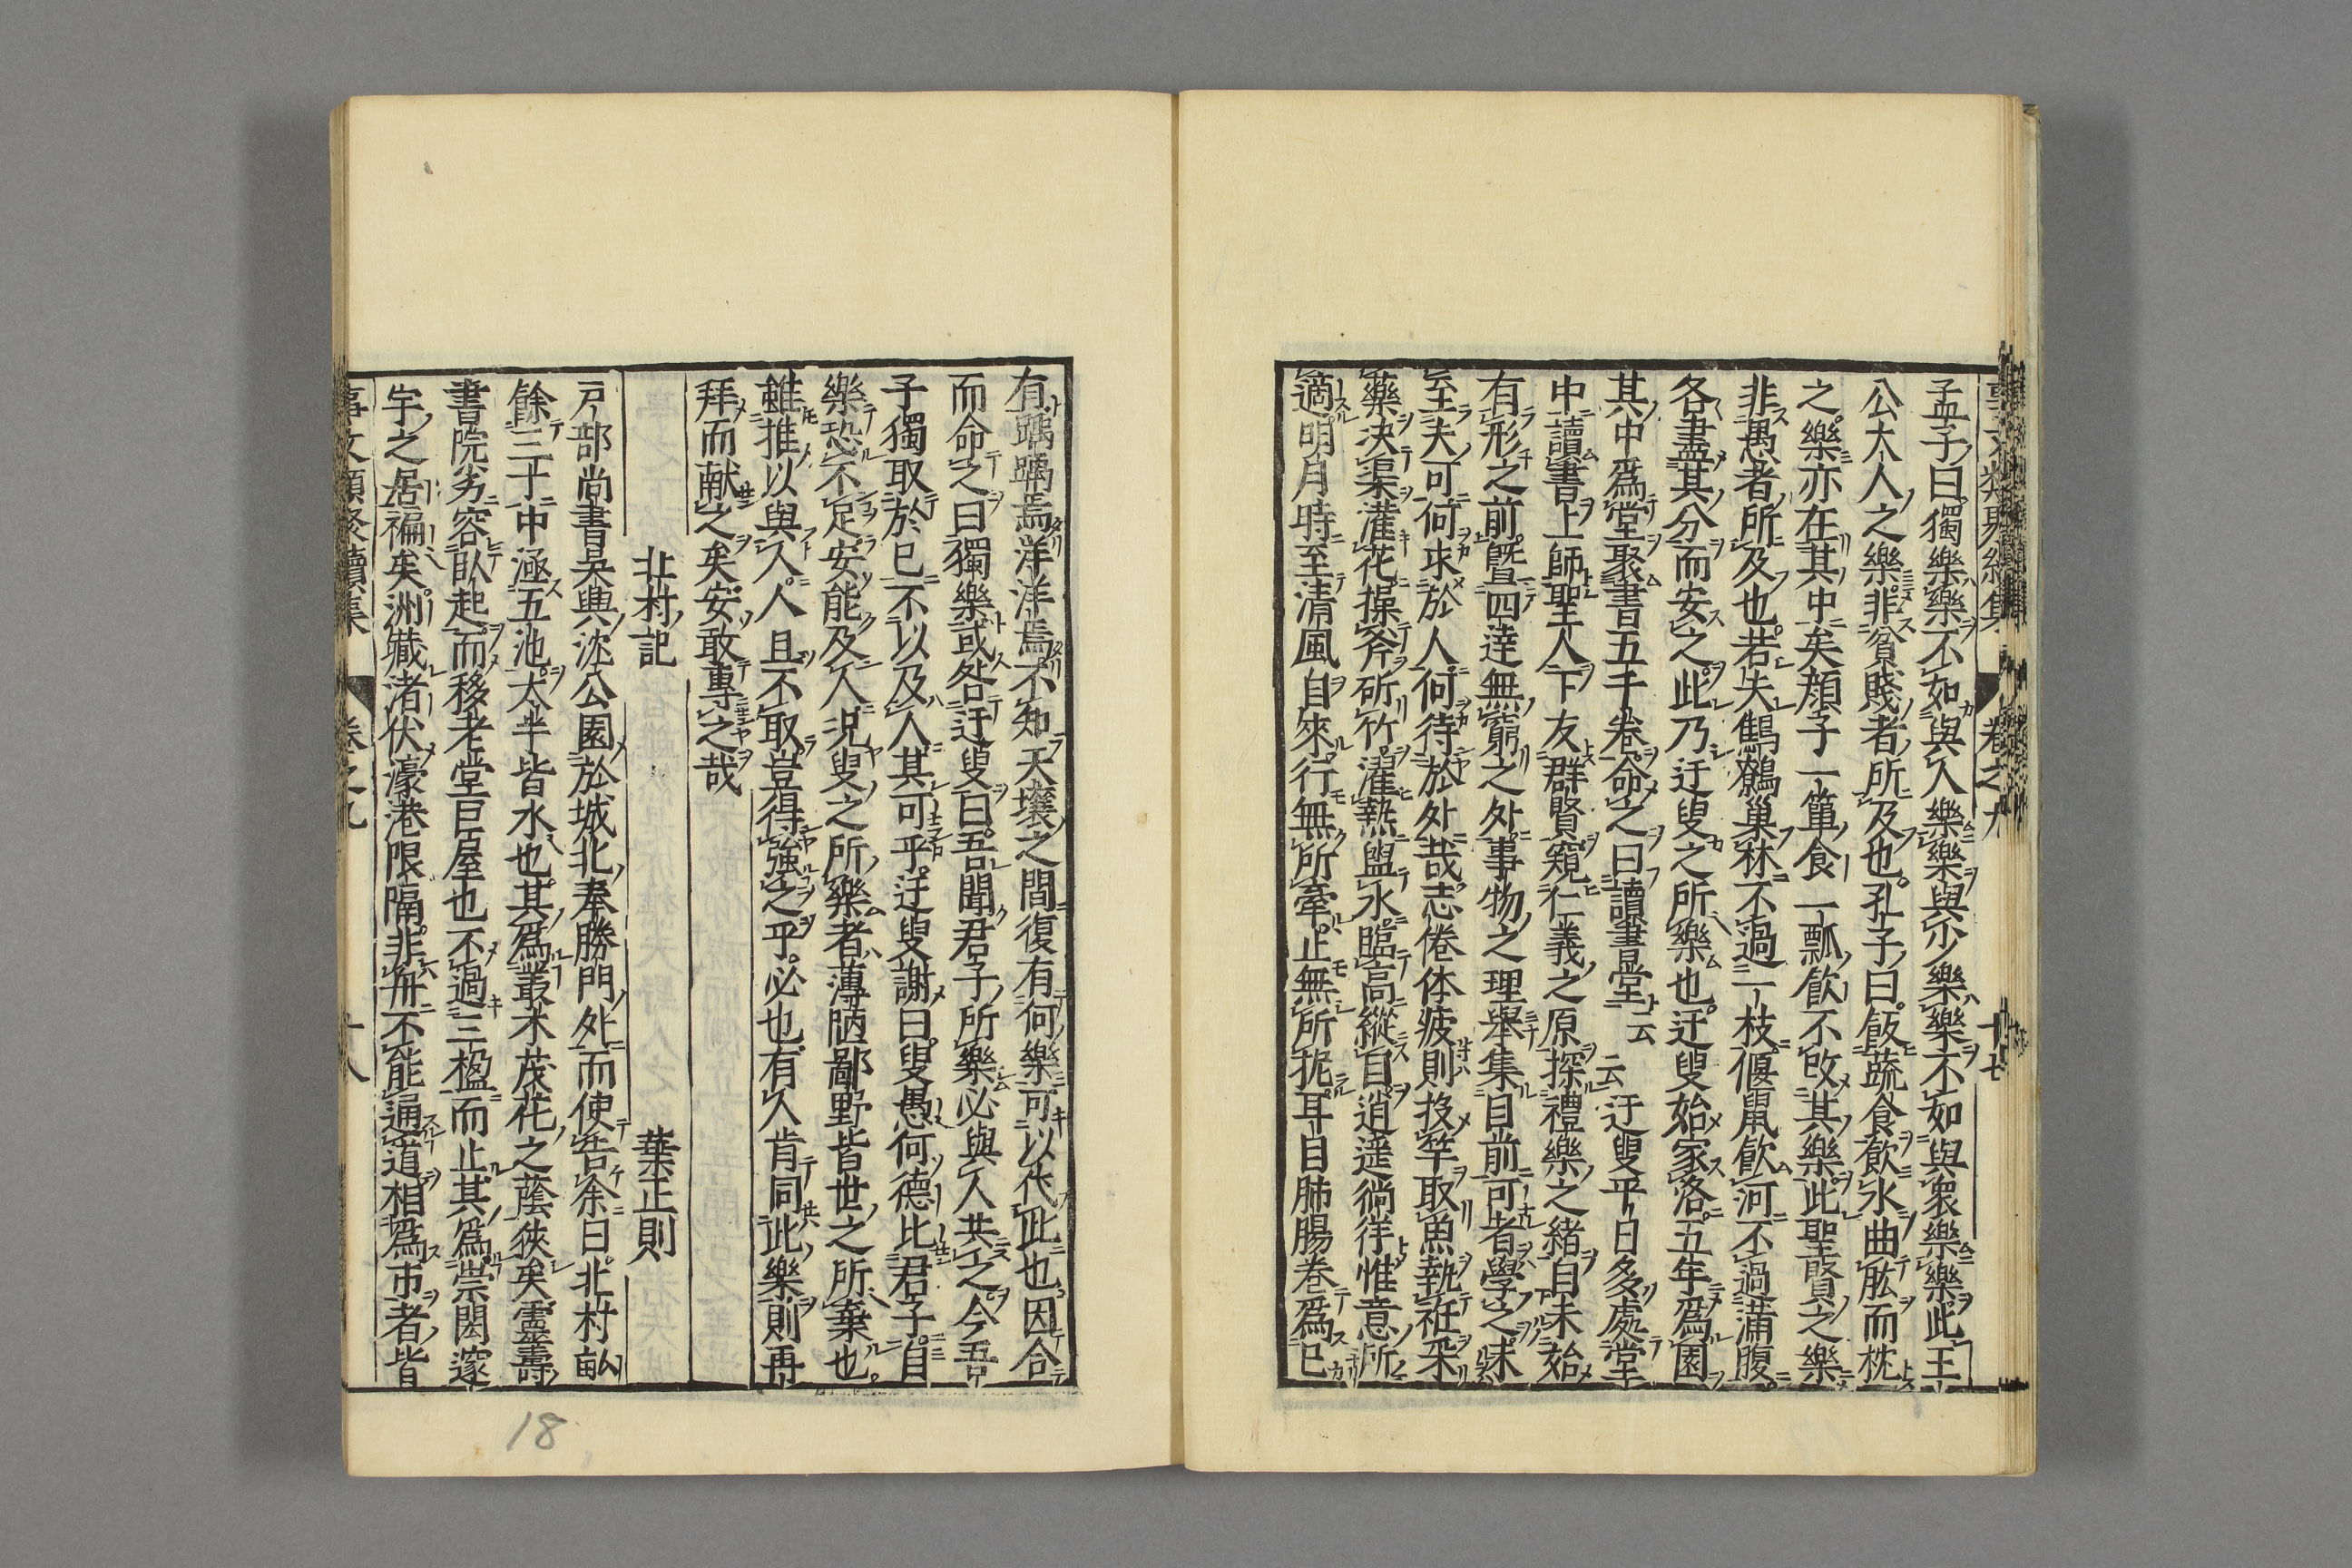 孟子曰獨樂樂不如與人樂樂與少樂樂不如與衆樂樂此王
公大人之樂非貧賤者所及也孔子曰飯蔬食飲水曲肱而枕
之樂亦在其中矣顔子一簞食一瓢飲不改其樂此聖賢之樂
非愚者所及也若夫鷦鷯巢林不過一枝偃鼠飲河不過滿腹
各盡其分而安之此乃迂叟之所樂也迂叟始家洛五年爲園
其中爲堂聚書五千卷命之曰讀書堂云云迂叟平日多處堂
中讀書上師聖人下友群賢窺仁義之原探禮樂之緒自未始
有形之前曁四達無窮之外事物之理舉集目前可者學之未
至夫可何求於人何待於外哉志倦体疲則投竿取魚執衽采
藥决渠灌花操斧斫竹濯熱盥水臨高縱目逍遥徜徉惟意所
適明月時至清風自來行無所牽止無所抳耳目肺腸卷爲已
卷之九
十七
有踽踽焉洋洋焉不知天壤之間復有何樂可以代此也因合
而命之曰獨樂或咎迂叟曰吾聞君子所樂必與人共之今吾
子獨取於已不以及人其可乎迂叟謝曰叟愚何德比君子自
樂恐不足安能及人况叟之所樂者薄陋鄙野皆世之所棄也
雖推以與人人且不取豈得強之乎必也有人肯同此樂則再
拜而献之矣安敢專之哉
北村記 葉正則
戸部尚書吳興沈公園於城北奉勝門外而使告余曰北村畆
餘三十中涵五池太半皆水也其爲叢木茂花之蔭狹矣靈壽
書院劣容臥起而移老堂巨屋也不過三楹而止其爲崇閎邃
宇之居褊矣洲藏渚伏濠港限隔非舟不能通道相爲市者皆
事文類聚續集 卷之九 十八
18